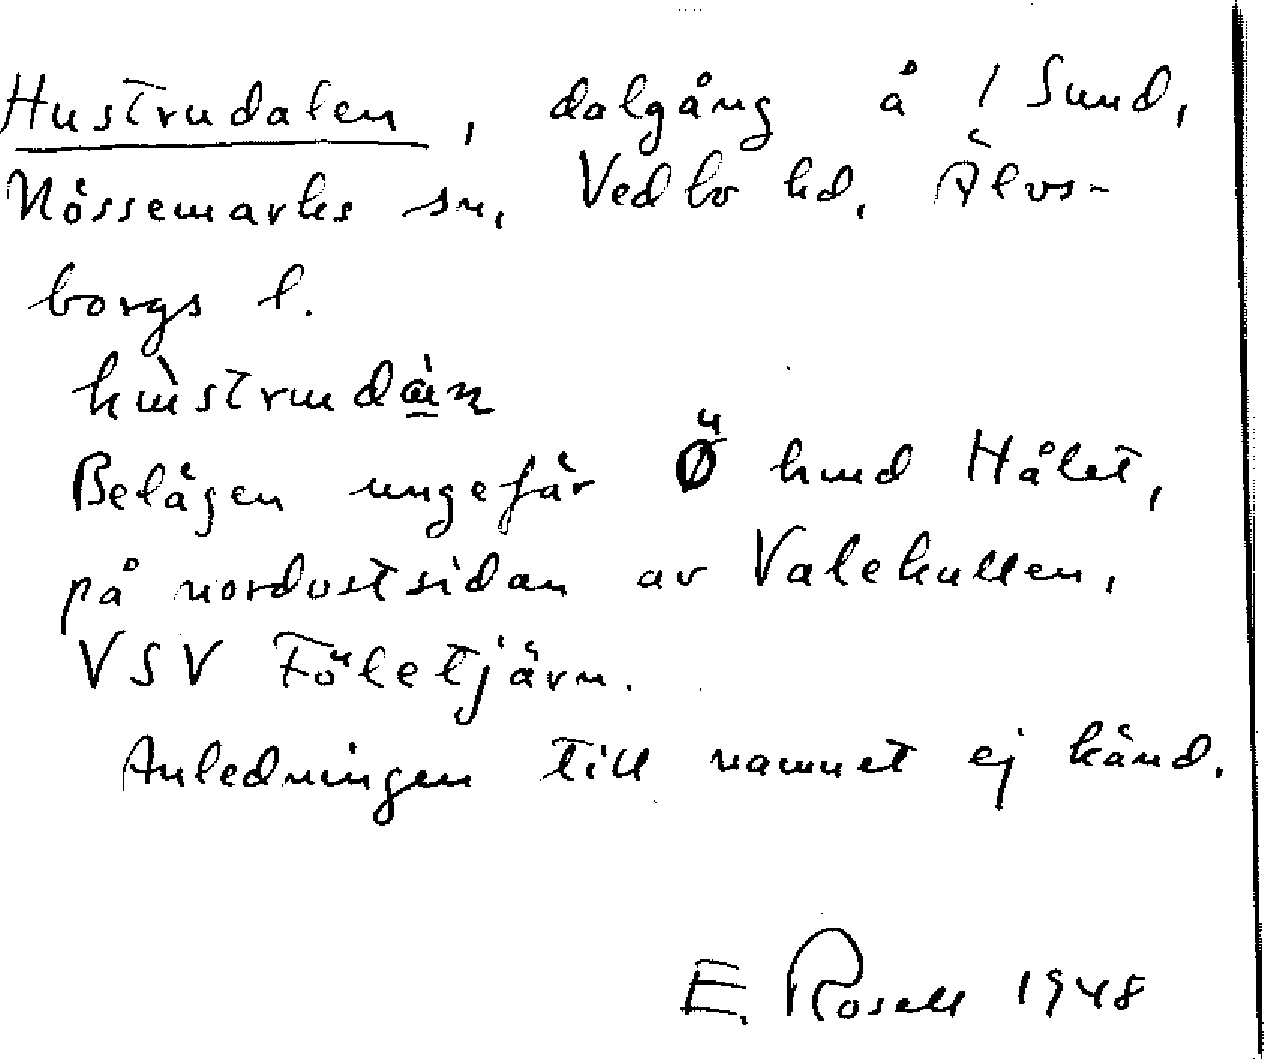 Hustrudalen, dalgång å 1 Sund,
Nössemarks sn, Vedbo hd, Älvs-
borgs l.
Belägen ungefär Ö hmd Hålet,
på nordostsidan av Valekullen,
VSV Föletjärn.
Anledningen till namnet ej känd.
E. Rosell 1948